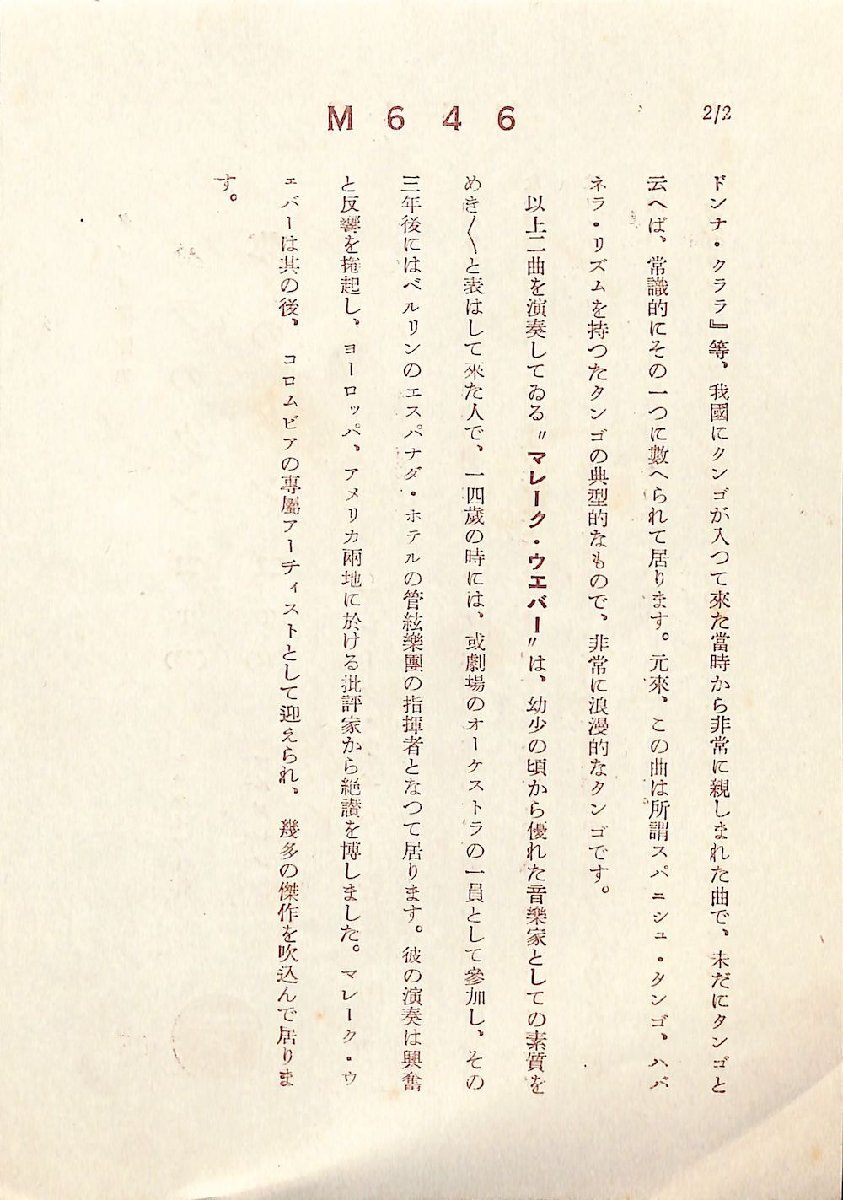 2/2
M646
ドンナ・クララ』等、我國にタンゴが入つて來た當時から非常に親しまれた曲で、未だにタンゴと
云へば、常識的にその一つに數へられて居ります。元來、この曲は所謂スパニシュ・タンゴ、ハバ
ネラ・リズムを持つたタンゴの典型的なもので、非常に浪漫的なタンゴです。
以上二曲を演奏してゐる〃マレーク・ウエバー〃は、幼少の頃から優れた音樂家としての素質を
めき〳〵と表はして來た人で、一四歲の時には、或劇場のオーケストラの一員として參加し、その
三年後にはベルリンのエスパナダ・ホテルの管絃樂團の指揮者となつて居ります。彼の演奏は興奮
と反響を捲起し、ヨーロッパ、アメリカ兩地に於ける批評家から絶讃を博しました。マレーク・ウ
ェバーは其の後、コロムビアの專屬アーティストとして迎えられ、幾多の傑作を吹込んで居りま
す。